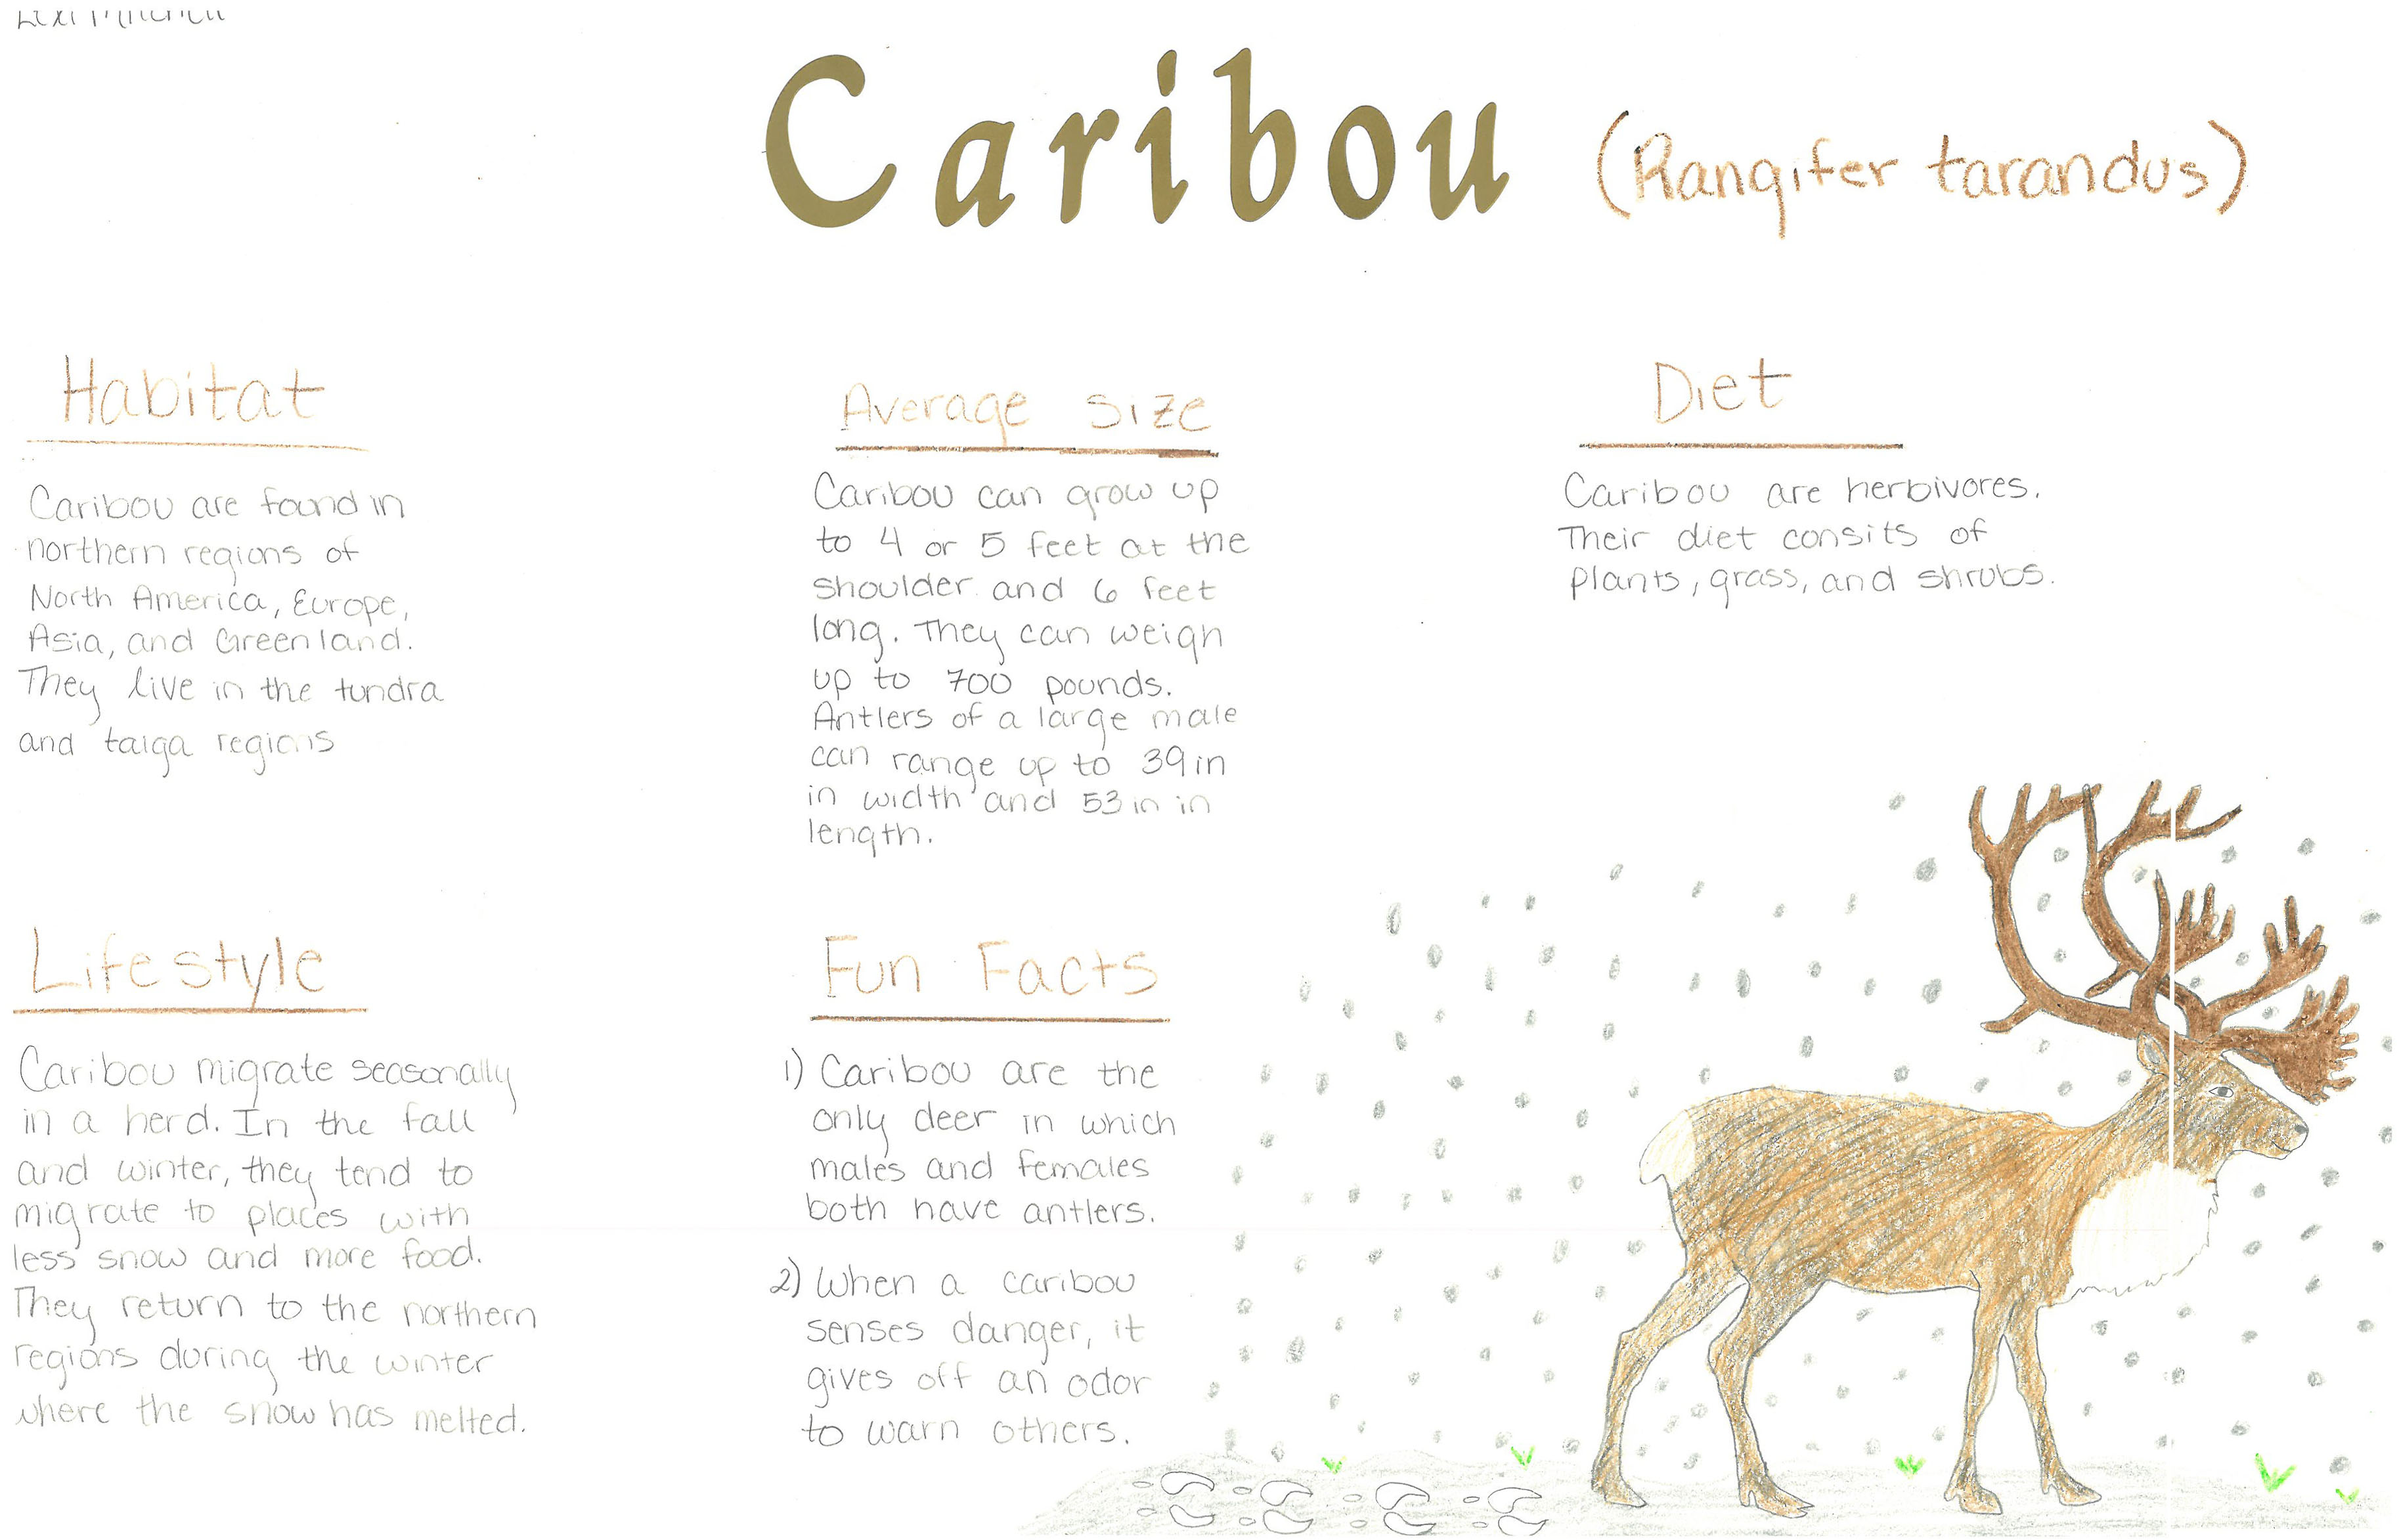 Caribou (Rangifer tarandus)
Habitat
Caribou are found in
northern regions of
North America, Europe,
Asia, and Greenland.
They live in the tundra
and taiga regions
Average size
Caribou can grow up
to 4 or 5 feet at the
shoulder and 6 feet
long. They can weigh
up to 700 pounds.
Antlers of a large male
can range up to 39 in
in width and 53 in in
length.
Diet
Caribou are herbivores.
Their diet consits of
plants, grass, and shrubs.
Lifestyle
Caribou migrate seasonally
in a herd. In the fall
and winter, they tend to
migrate to places with
less snow and more food.
They return to the northern
regions during the winter
where the snow has melted.
Fun Facts
1) Caribou are the
only deer in which
males and females
both have antlers.
2) When a caribou
senses danger, it
gives off an odor
to warn others.